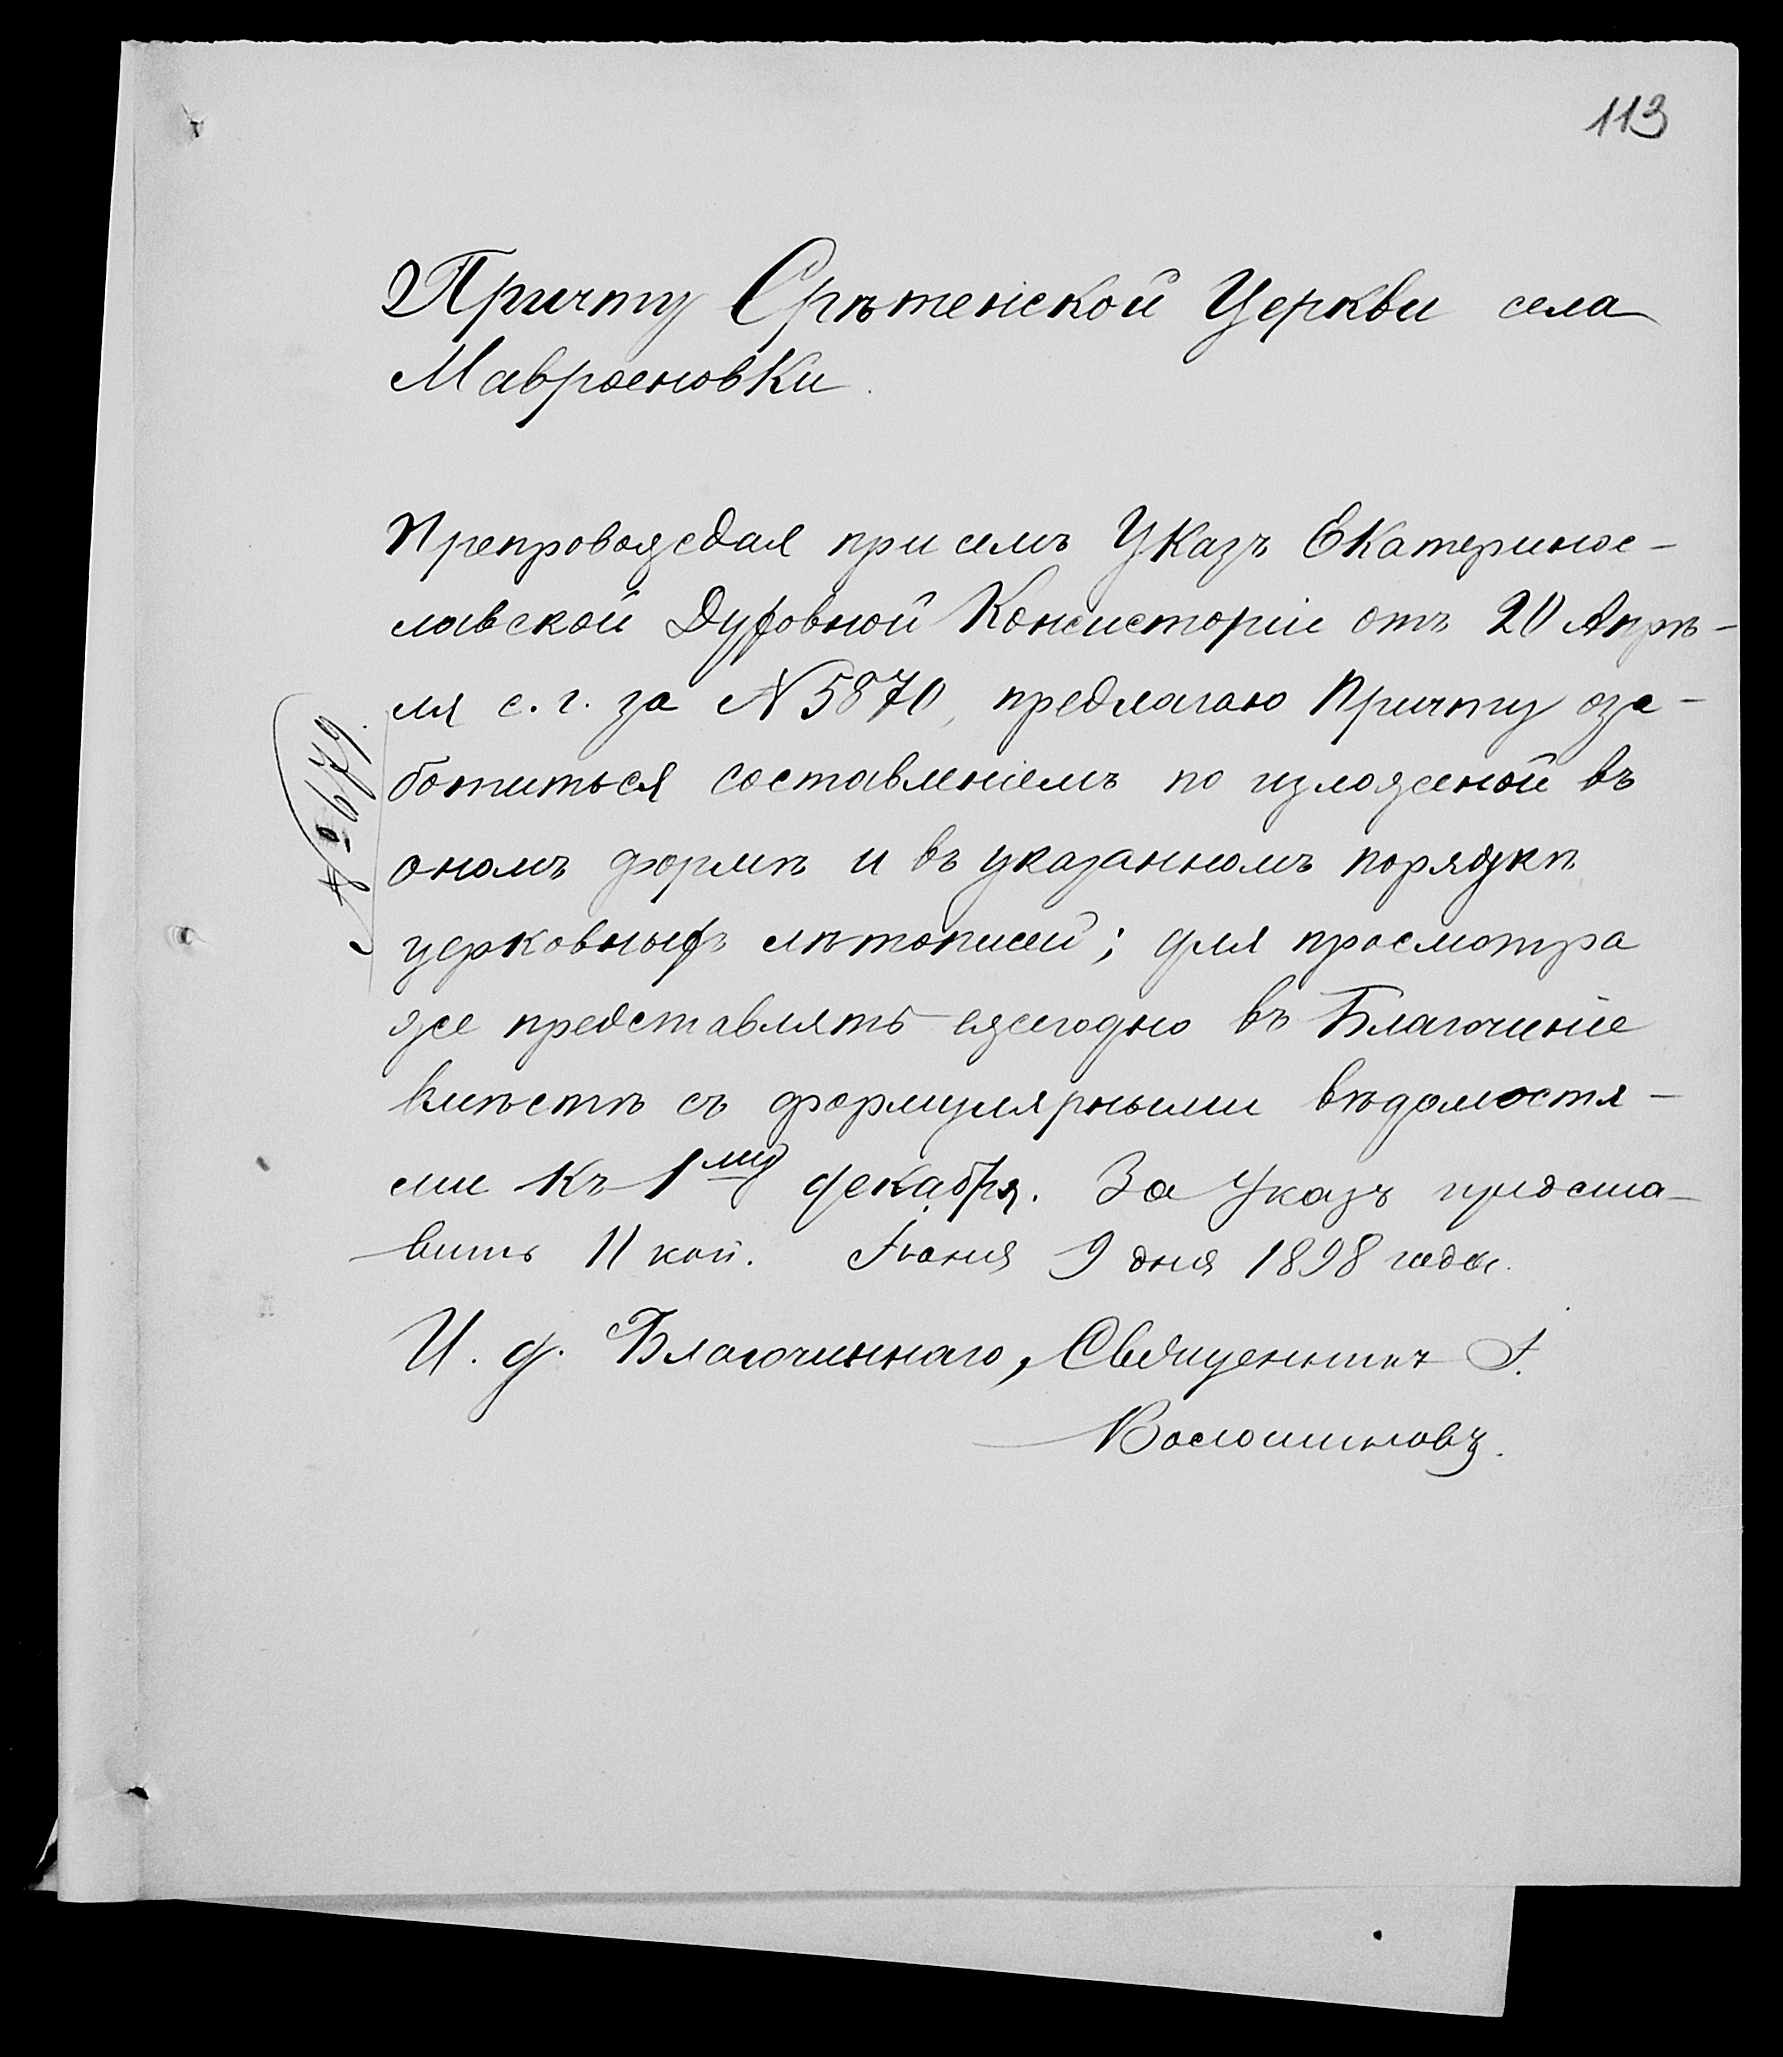 113
Причту Срѣтенской Церкви села
Мавроеновки.
Препровождая при семъ Указъ Екатеринос-
лавской Духовной Консисторіи отъ 20 Апрѣ-
ля с. г. за N 5870, предлагаю Причту оза-
ботиться составленіемъ по изложеной въ
ономъ формѣ и въ указанномъ порядкѣ
церковныхъ лѣтописей; для просмотра
же представлять ежегодно въ Благочиніе
вмѣстѣ съ формулярными вѣдомостя-
ми къ 1му декабря. За Указъ предста-
вить 11 коп. Іюня 9 дня 1898 года.
И. д. Благочиннаго, Священникъ І.
Волошиновъ.
№ 679.